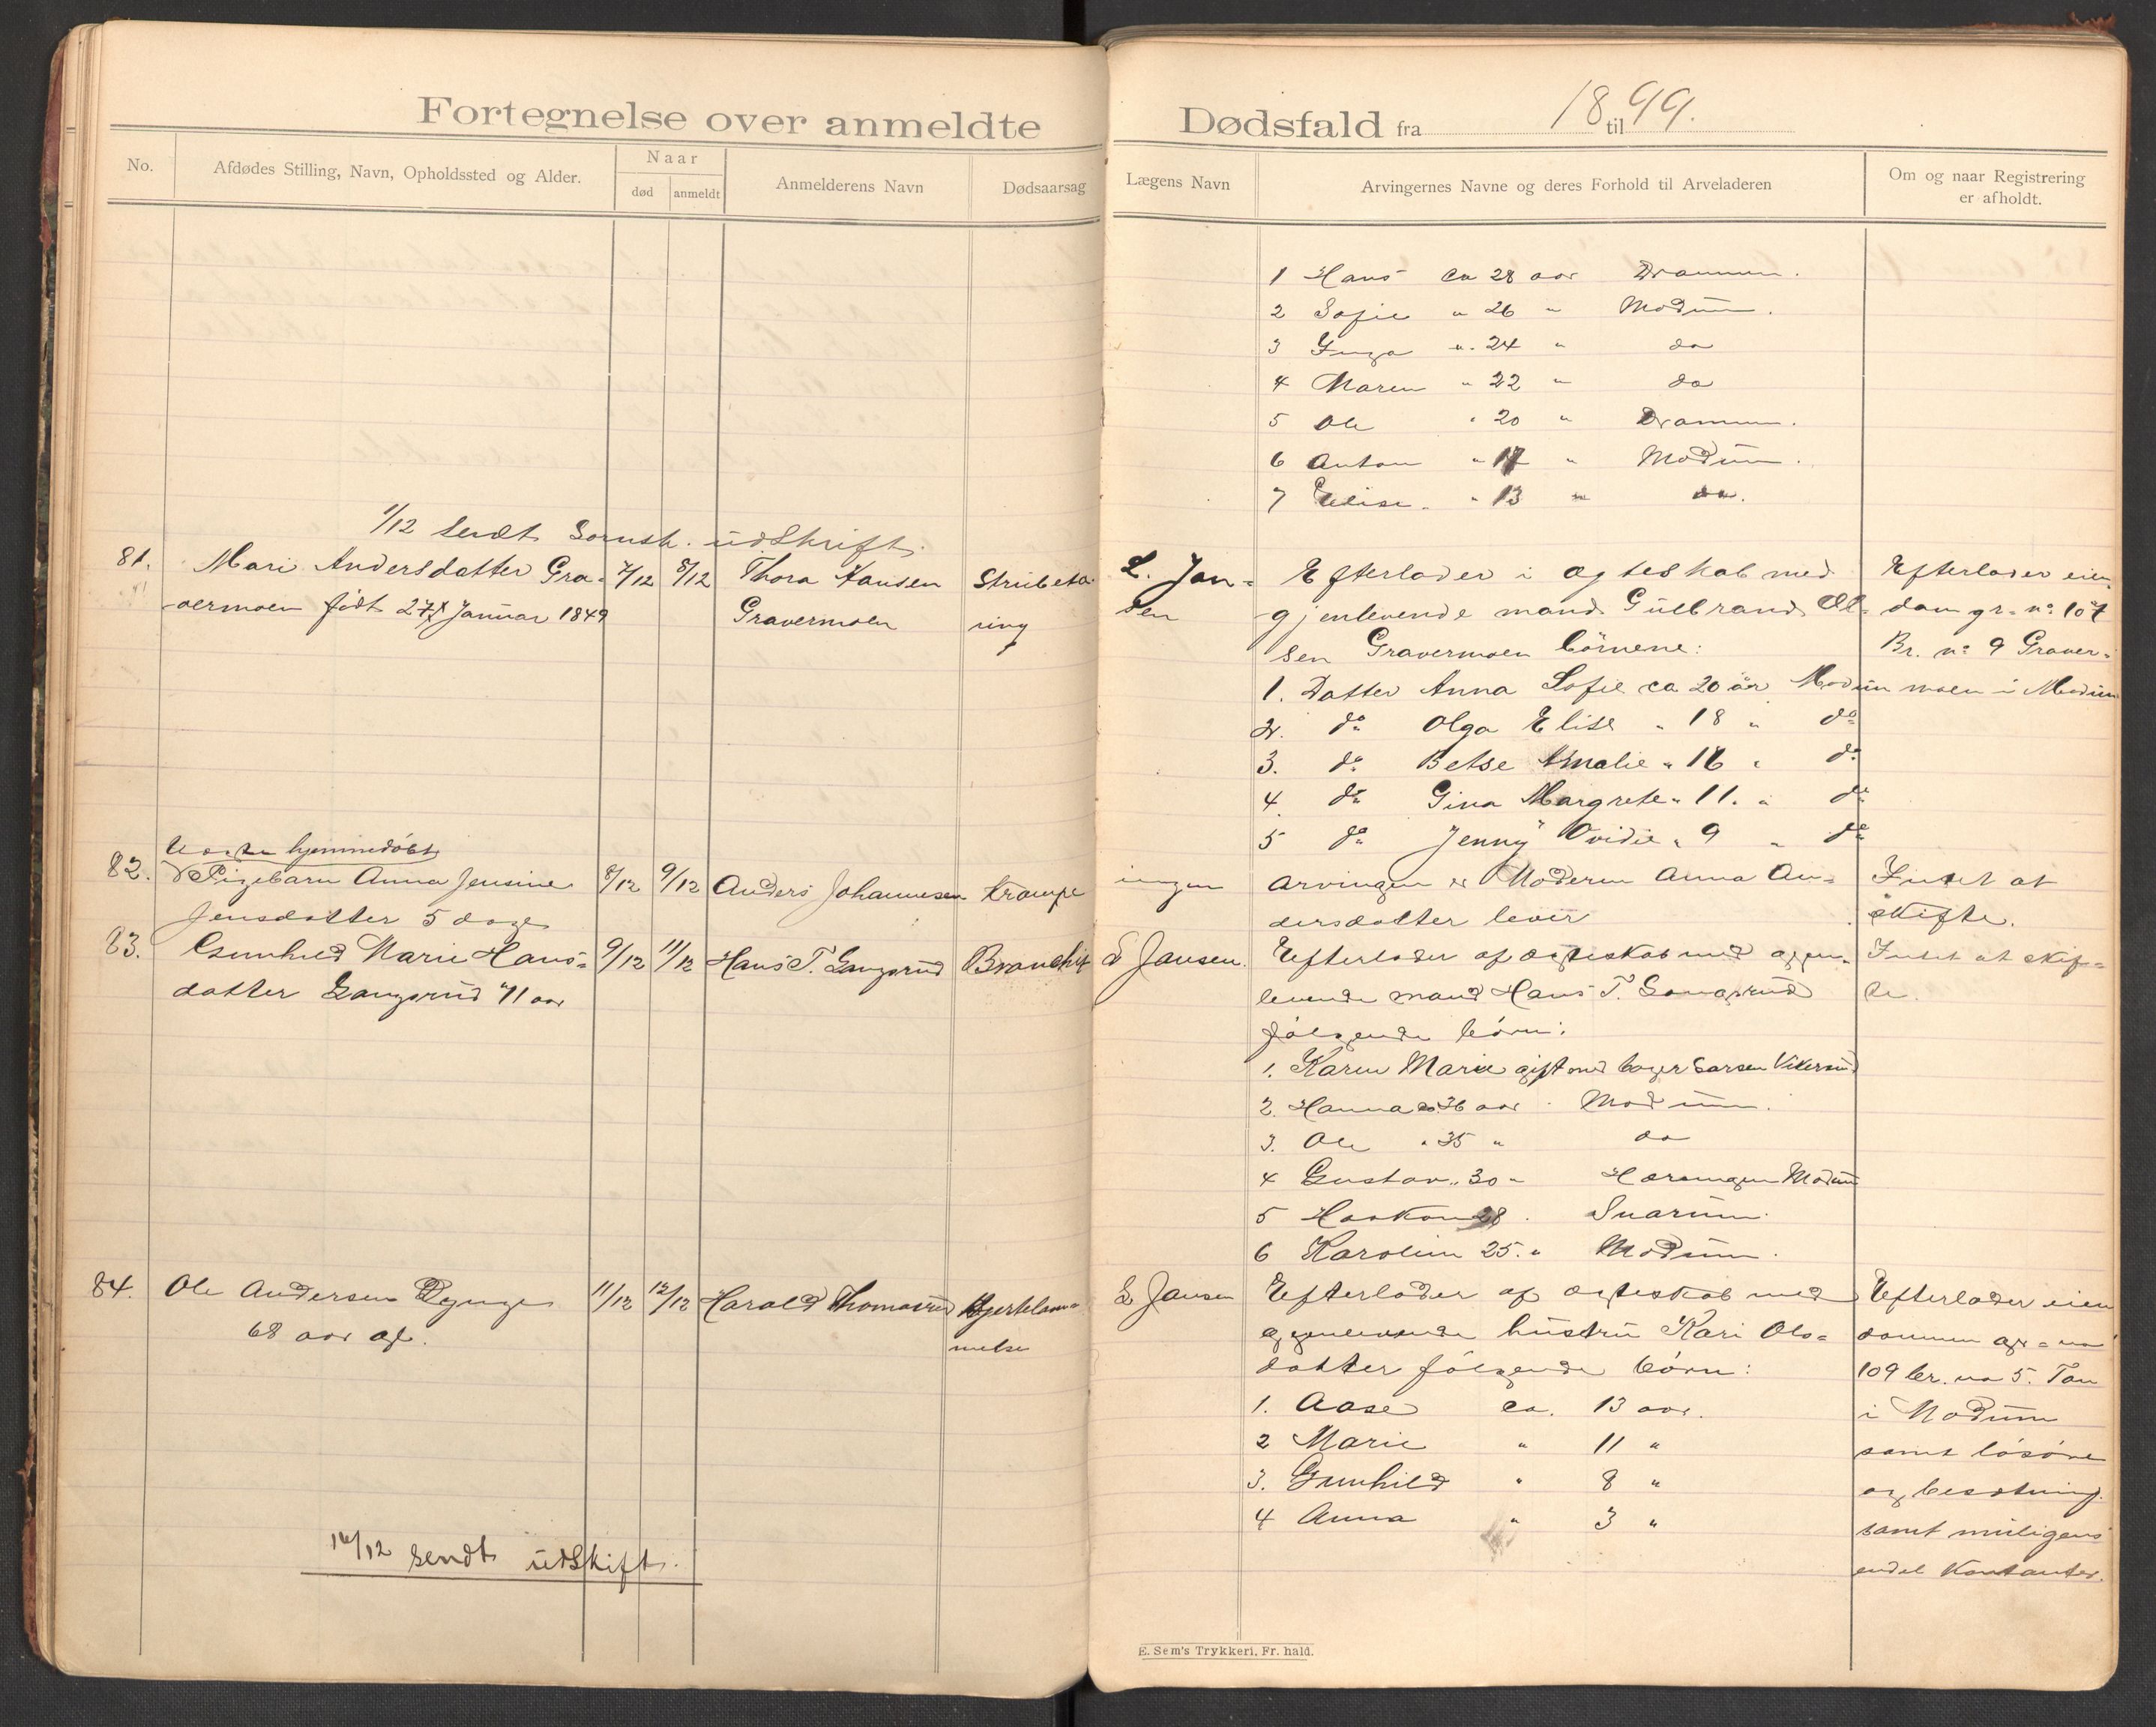 Fortegnelse over anmeldte
No.
Afdødes Stilling, Navn, Opholdssted og Alder.
Naar
død
anmeldt
Anmelderens Navn
Dødsaarsag
1/12 sendt Sornsk. udskrift.
81. Mari Andersdatter Gra- 7/12 8/12 Thora Hansen Strubeta-
vermoen født 27 Januar 1849 Gravermoen ring
hjemmedøbt
82. Pigebarn Anna Jensine 8/12 9/12 Anders Johannesen Krampe
Jensdatter 5 dage
83. Gunhild Marie Hans- 9/12 11/12 Hans T. Langerud Bronchit
datter Langerud 71 aar
84. Ole Andersen 11/12 12/12 Harald Thomasrud Hjertelam-
68 aar gl. melse
14/12 sendt udskift.
Dødsfald fra 1899. til
Lægens Navn
Arvingernes Navne og deres Forhold til Arveladeren
Om og naar Registrering
er afholdt.
1 Hans ca 28 aar Drammen.
2 Sofie " 26 " Modum.
3 Inga " 24 " do
4 Maren " 22 " do
5 Ole " 20 " Drammen.
6 Anton " 17 " Modum.
7 Elise " 13 " do.
L. Jan- Efterlader i ægteskab med Efterlader eien-
sen gjenlevende mand Gulbrand Ol- dom gr. no 107
sen Gravermoen børnene: Br. no 9 Graver-
1. Datter Anna Sofie ca 20 år Modum moen i Modum
2. do Olga Elise " 18 " do
3. do Betse Amalie " 16 " do
4. do Gina Margrete " 11. " do
5 do Jenny Ovidie " 9 " do
ingen Arvingen er Moderen Anna An- Intet at
dersdatter lever skifte.
L Jansen. Efterlader af ægteskab med gjen- Intet at skif-
levende mand Hans T. Langerud te.
følgende børn:
1. Karen Marie gift med Larsen Vikersund
2. Hanna ca 36 aar Modum.
3. Ole " 35 " do
4 Gustav " 30 " Modum
5 Haakon 28. Snarum.
6 Karoline 25. " Modum.
L Jansen Efterlader af ægteskab med Efterlader eien
gjenlevende hustru Kari Ols- dommen gr. no
datter følgende børn: 109 br. no 5.
1. Aase ca. 13 aar. i Modum
2 Marie " 11 " samt løsøre
3. Gunhild " 8 " og besætning.
4 Anna " 3 " samt muligens
endel Kontanter.
E. Sem's Trykkeri, Fr. hald.